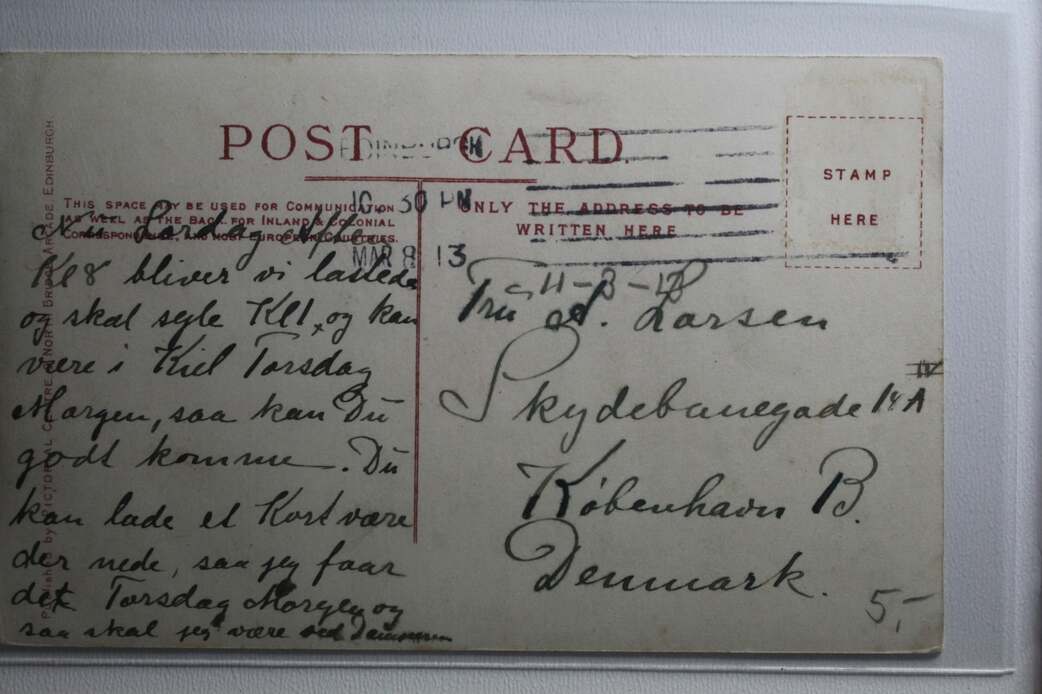 POST CARD
EDINBURGH
10. 30 PM
MAR 8 13
THIS SPACE MAY BE USED FOR COMMUNICATION
AS WELL AS THE BACK FOR INLAND & COLONIAL
CORRESPONDENCE, AND MOST EUROPEAN COUNTRIES.
ONLY THE ADDRESS TO BE
WRITTEN HERE
STAMP
HERE
Nu Lørdag Aften
Kl 8 bliver vi lastede
og skal sejle Kl 1, og kan
være i Kiel Torsdag
Morgen, saa kan Du
godt komme. Du
kan lade et Kort være
der nede, saa jeg faar
det Torsdag Morgen og
saa skal jeg være ved
11-3-13
Fru A. Larsen
Skydebanegade 14 A IV
København B.
Denmark.
5,-
ARCADE EDINBURGH